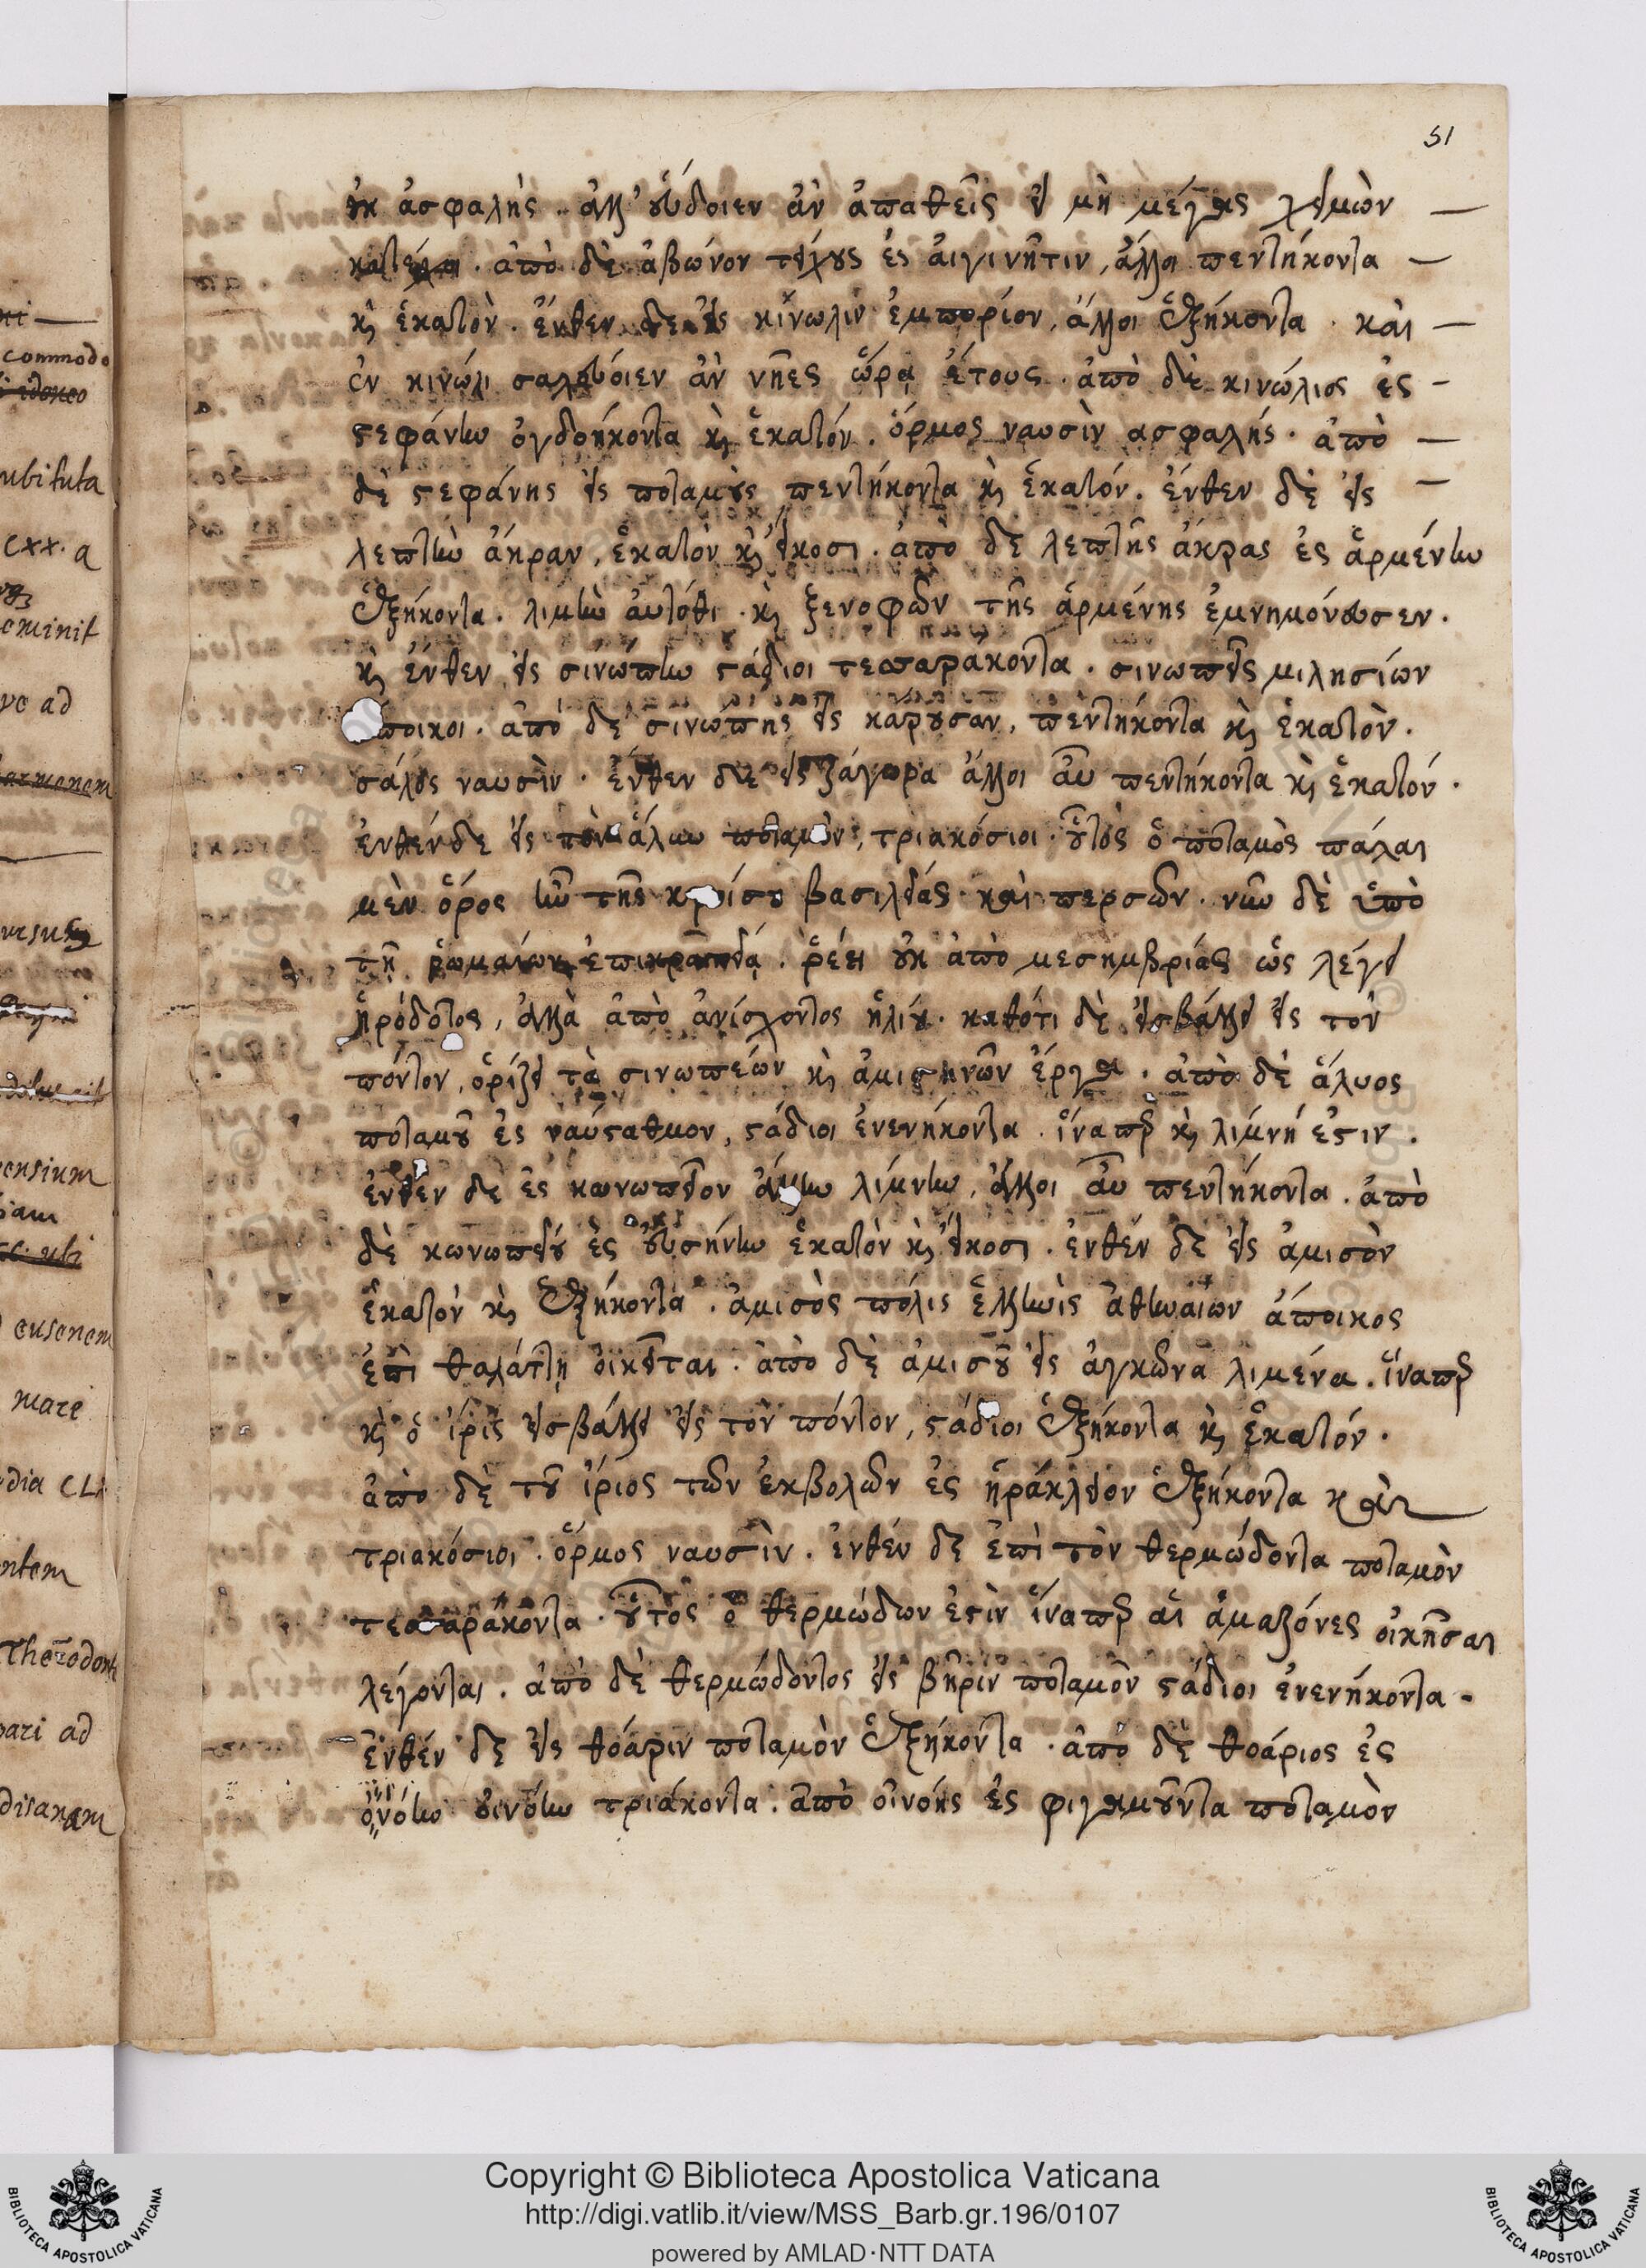 51
οὐκ ἀσφαλής. ἀλλ' εὕδοιεν ἂν ἀπαθεῖς εἰ μὴ μέγας χειμὼν —
κατέχοι. ἀπὸ δὲ ἀβώνου τείχους ἐς αἰγινῆτιν, ἄλλοι πεντήκοντα —
κὶ ἑκατὸν. ἔνθεν δὲ εἰς κίνωλιν ἐμπορίον, ἄλλοι ἑξήκοντα. καὶ —
ἐν κινώλι σαλεύοιεν ἂν νῆες ὥρᾳ ἔτους. ἀπὸ δὲ κινώλιος ἐς –
στεφάνην ὀγδοήκοντα κὶ ἑκατόν. ὅρμος ναυσὶν ασφαλής. ἀπὸ —
δὲ στεφάνης εἰς ποταμοὺς πεντήκοντα κὶ ἑκατόν. ἔνθεν δὲ εἰς —
λεπτὴν ἄκραν, ἑκατὸν κὶ εἴκοσι. ἀπὸ δὲ λεπτῆς ἄκρας ἐς ἁρμένην
ἑξήκοντα. λιμὴν αὐτόθι. κὶ ξενοφῶν τῆς ἁρμένης ἐμνημόνευσεν.
κὶ ἔνθεν εἰς σινώπην στάδιοι τεσσαρακοντα. σινωπεῖς μιλησίων
ἄποικοι. ἀπὸ δὲ σινώπης εἰς κάρουσαν, πεντήκοντα κὶ ἑκατὸν.
σάλος ναυσὶν. ἔνθεν δὲ εἰς ζάγωρα ἄλλοι αὖ πεντήκοντα κὶ ἑκατόν.
ἐνθένδε εἰς τὸν ἅλυν ποταμὸν, τριακόσιοι. οὗτος ὁ ποταμὸς πάλαι
μὲν ὅρος ἦν τῆς κροίσου βασιλείας καὶ περσῶν. νῦν δὲ ὑπὸ
τῇ ῥωμαίων ἐπικρατείᾳ. ῥέει οὐκ ἀπὸ μεσημβρίας ὡς λέγει
ἡρόδοτος, ἀλλὰ ἀπὸ ἀνίσχοντος ἡλίου. καθότι δὲ εἰσβάλλει εἰς τὸν
πόντον, ὁρίζει τὰ σινωπεών κὶ ἀμισηνῶν ἔργα. ἀπὸ δὲ ἅλυος
ποταμοῦ ἐς ναύσταθμον, στάδιοι ἐνενήκοντα. ἵναπερ κὶ λίμνή ἐστιν.
ἐνθέν δὲ ἐς κωνωπεῖον ἄλλην λίμνην, ἄλλοι αὖ πεντήκοντα. ἀπὸ
δὲ κωνωπείου ἐς εὐσήνην ἑκατὸν κὶ εἴκοσι. ἐνθέν δὲ εἰς ἀμισὸν
ἑκατὸν κὶ ἑξήκοντα. ἀμισὸς πόλις ἑλληνὶς ἀθηναίων ἄποικος
ἐπὶ θαλάττῃ οἰκεῖται. ἀπὸ δὲ ἀμισοῦ εἰς ἀγκῶνα λιμένα. ἵναπερ
κὶ ὁ ἶρις εἰσβάλλει εἰς τὸν πόντον, στάδιοι ἑξήκοντα κὶ ἑκατόν.
ἀπὸ δὲ τοῦ ἴριος τῶν ἐκβολῶν ἐς ἡράκλειον ἑξήκοντα καὶ
τριακόσιοι. ὅρμος ναυσὶν. ἐνθέν δὲ ἐπὶ τὸν θερμώδοντα ποταμὸν
τεσσαράκοντα. οὗτος ὁ θερμώδων ἐστὶν ἵναπερ αἱ ἀμαζόνες οἰκῆσαι
λέγονται. ἀπὸ δὲ θερμώδοντος εἰς βῆριν ποταμὸν στάδιοι ἐνενήκοντα.
ἐνθέν δὲ εἰς θόαριν ποταμὸν ἑξήκοντα. ἀπὸ δὲ θοάριος ἐς
οἰνόην τριάκοντα. ἀπὸ οἰνόης ἐς φιγαμοῦντα ποταμὸν
commodo
ubi tuta
cxx. a
ominit
vo ad
ensium
mare
Thermodonte
pari ad
Copyright © Biblioteca Apostolica Vaticana
http://digi.vatlib.it/view/MSS_Barb.gr.196/0107
powered by AMLAD·NTT DATA
BIBLIOTECA APOSTOLICA VATICANA
BIBLIOTECA APOSTOLICA VATICANA